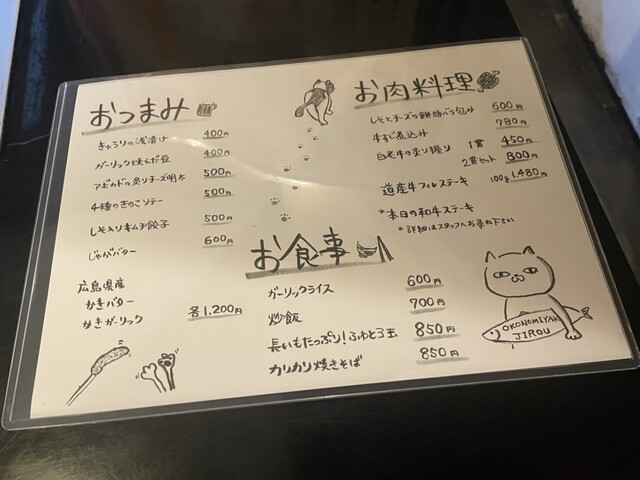 おつまみ
きゅうりの浅漬け 400円
ガーリック焼えだ豆 400円
アボカドの炙りチーズ明太 500円
4種のきのこソテー 500円
しそ入りキムチ餃子 500円
じゃがバター 600円
広島県産
かきバター
かきガーリック 各1,200円
お肉料理
しそとチーズの豚バラ包み 600円
牛すじ煮込み 780円
白老牛の炙り握り 1貫 450円
2貫セット 800円
道産牛フィレステーキ 100g 1,480円
*本日の和牛ステーキ
*詳細はスタッフへお尋ね下さい
お食事
ガーリックライス 600円
炒飯 700円
長いもたっぷり!ふわとろ玉 850円
カリカリ焼きそば 850円
OKONOMIYAKI
JIROU